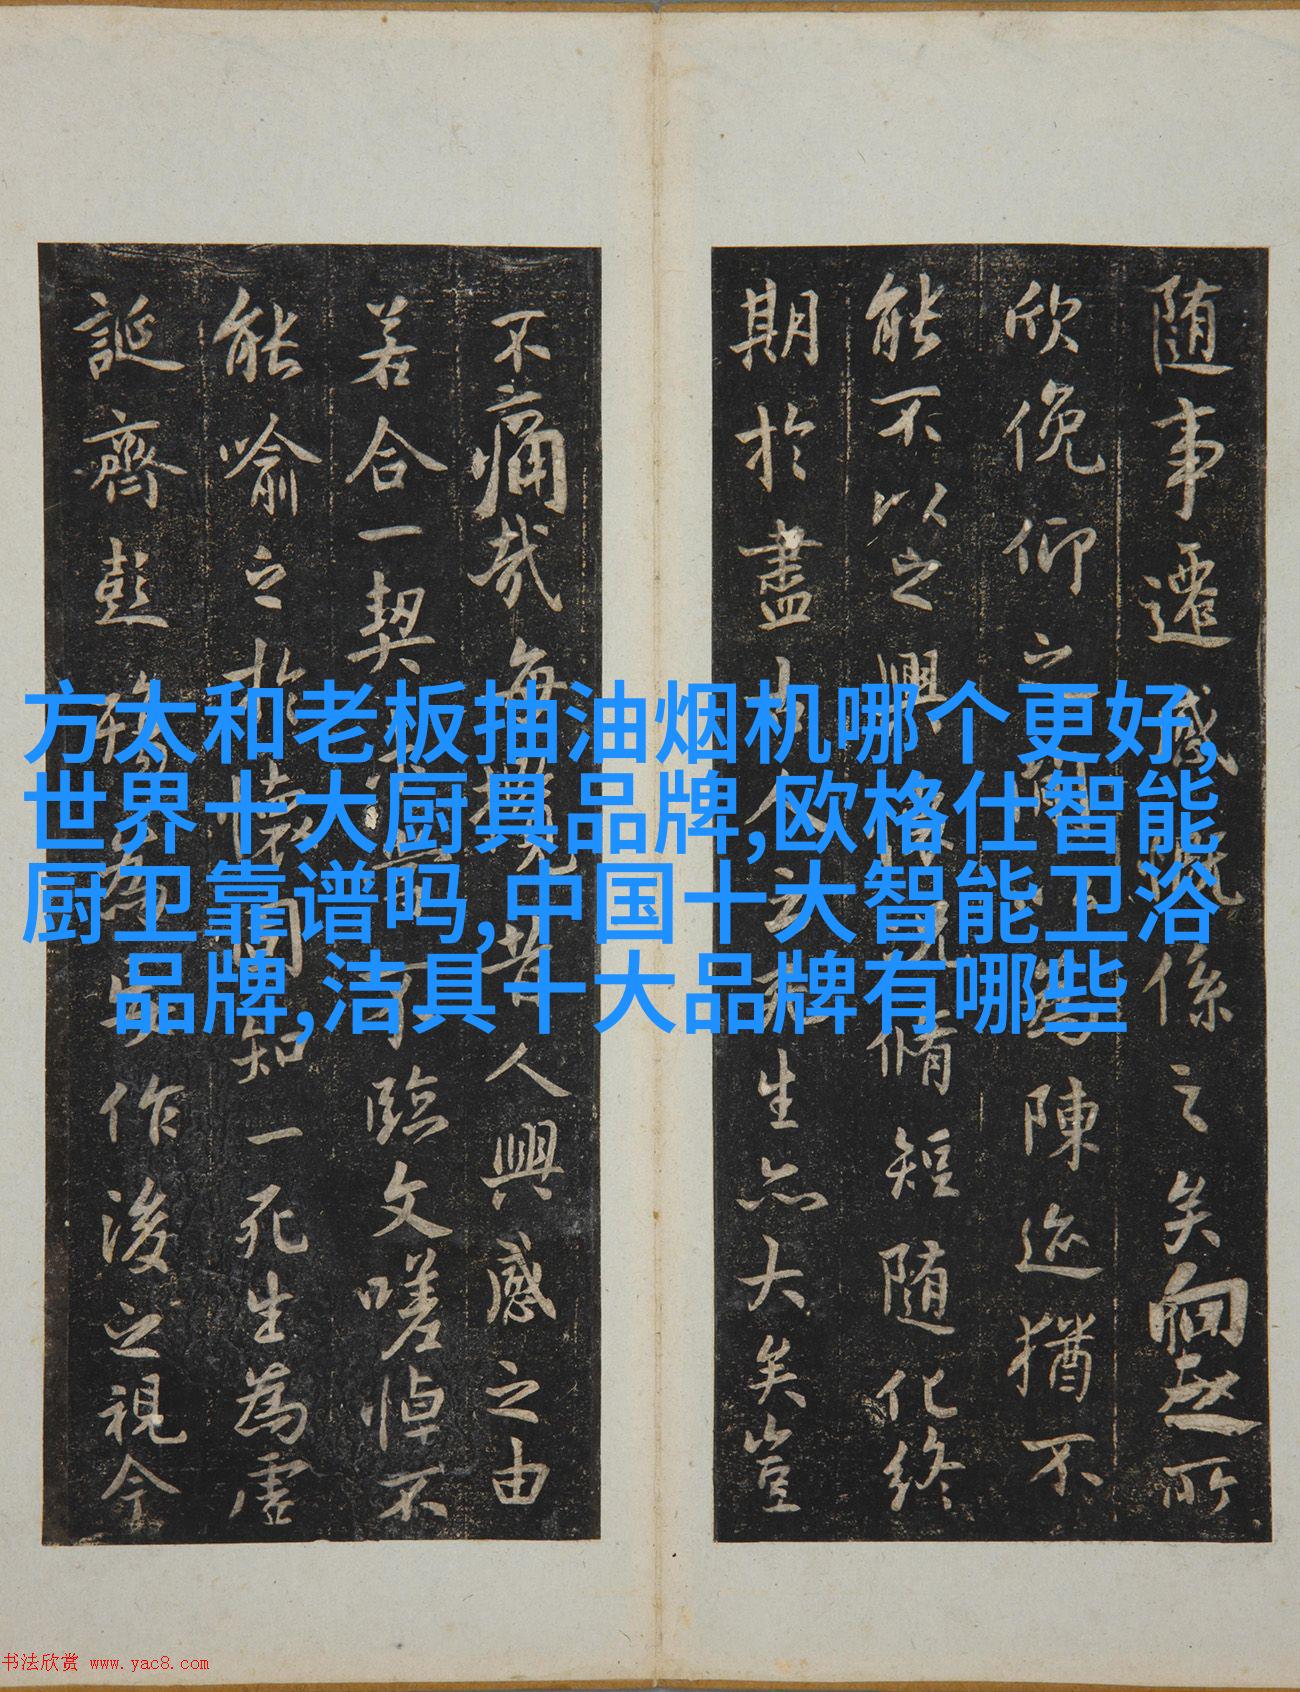 方太和老板抽油烟机哪个更好,
世界十大厨具品牌,欧格仕智能
厨卫靠谱吗,中国十大智能卫浴
品牌,洁具十大品牌有哪些
随事遷感慨係之矣向之所
欣俛仰之間以為陳迹猶不
能不以之興懷況脩短随化終
期於盡古人云死生亦大矣豈
不痛哉每攬昔人興感之由
若合一契未嘗不臨文嗟悼不
能喻之於懷固知一死生為虛
誕齊彭殤為妄作後之視今
书法欣赏 www.yac8.com